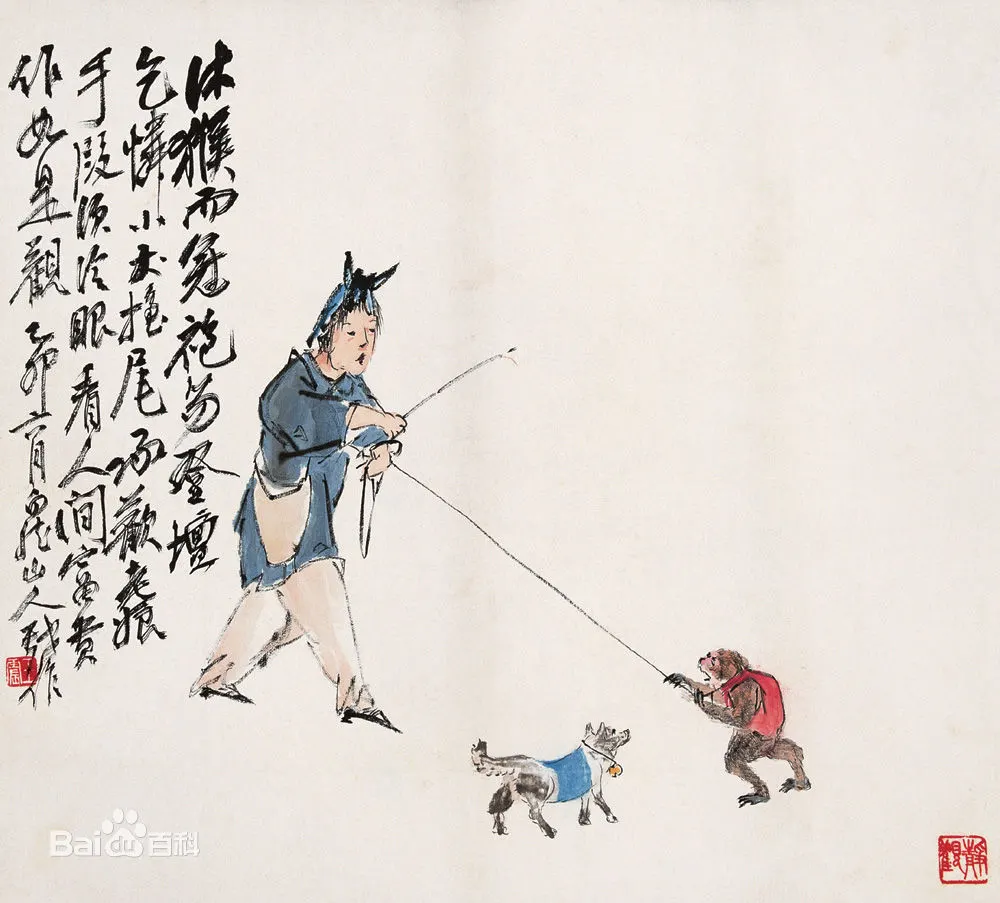 沐猴而冠袍笏登壇
乞憐小犬搖尾承歡
手段須冷眼看人間富貴
作如是觀 乙卯六月白龍山人作
王震
靜觀
Bai百科